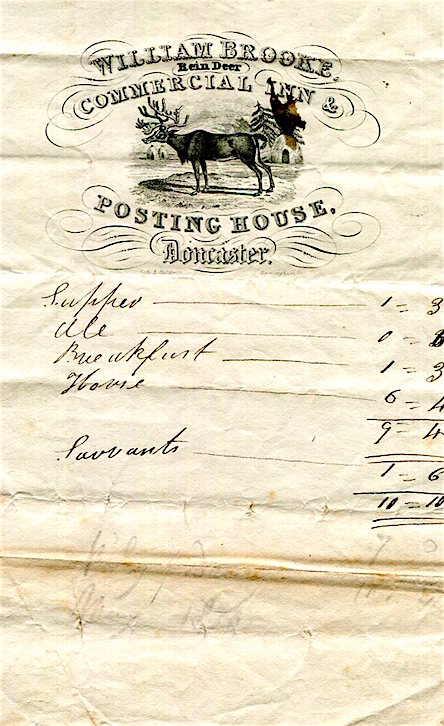 WILLIAM BROOKE,
Rein Deer
COMMERCIAL INN &
POSTING HOUSE,
Doncaster.
Birmingham
Supper 1 = 3
Ale 0 -
Breakfast 1 = 3
Horse 6 = 4
9 - 4
Sarvants
1 - 6
10 = 10